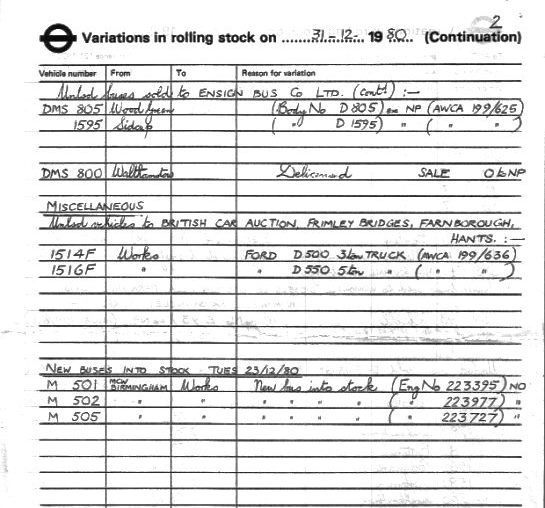 2
Variations in rolling stock on ........31-12-...19 80... (Continuation)
Vehicle number From To Reason for variation
Unlsd buses sold to ENSIGN BUS CO LTD. (cont.) :-
DMS 805 Wood Green (Body No D 805) ex NP (AWCA 199/625)
1595 Sidcup ( " D 1595) " ( " " )
DMS 800 Walthamstow Delicensed SALE O to NP
MISCELLANEOUS
Unlsd vehicles to BRITISH CAR AUCTION, FRIMLEY BRIDGES, FARNBOROUGH,
HANTS. :-
1514F Works FORD D500 3 ton TRUCK (AWCA 199/636)
1516F " " D550 5 ton " ( " " )
NEW BUSES INTO STOCK TUES 23/12/80
M 501 MCW BIRMINGHAM Works New bus into stock (Eng No 223395) NO
M 502 " " " " " " ( " 223977) "
M 505 " " " " " " ( " 223727) "